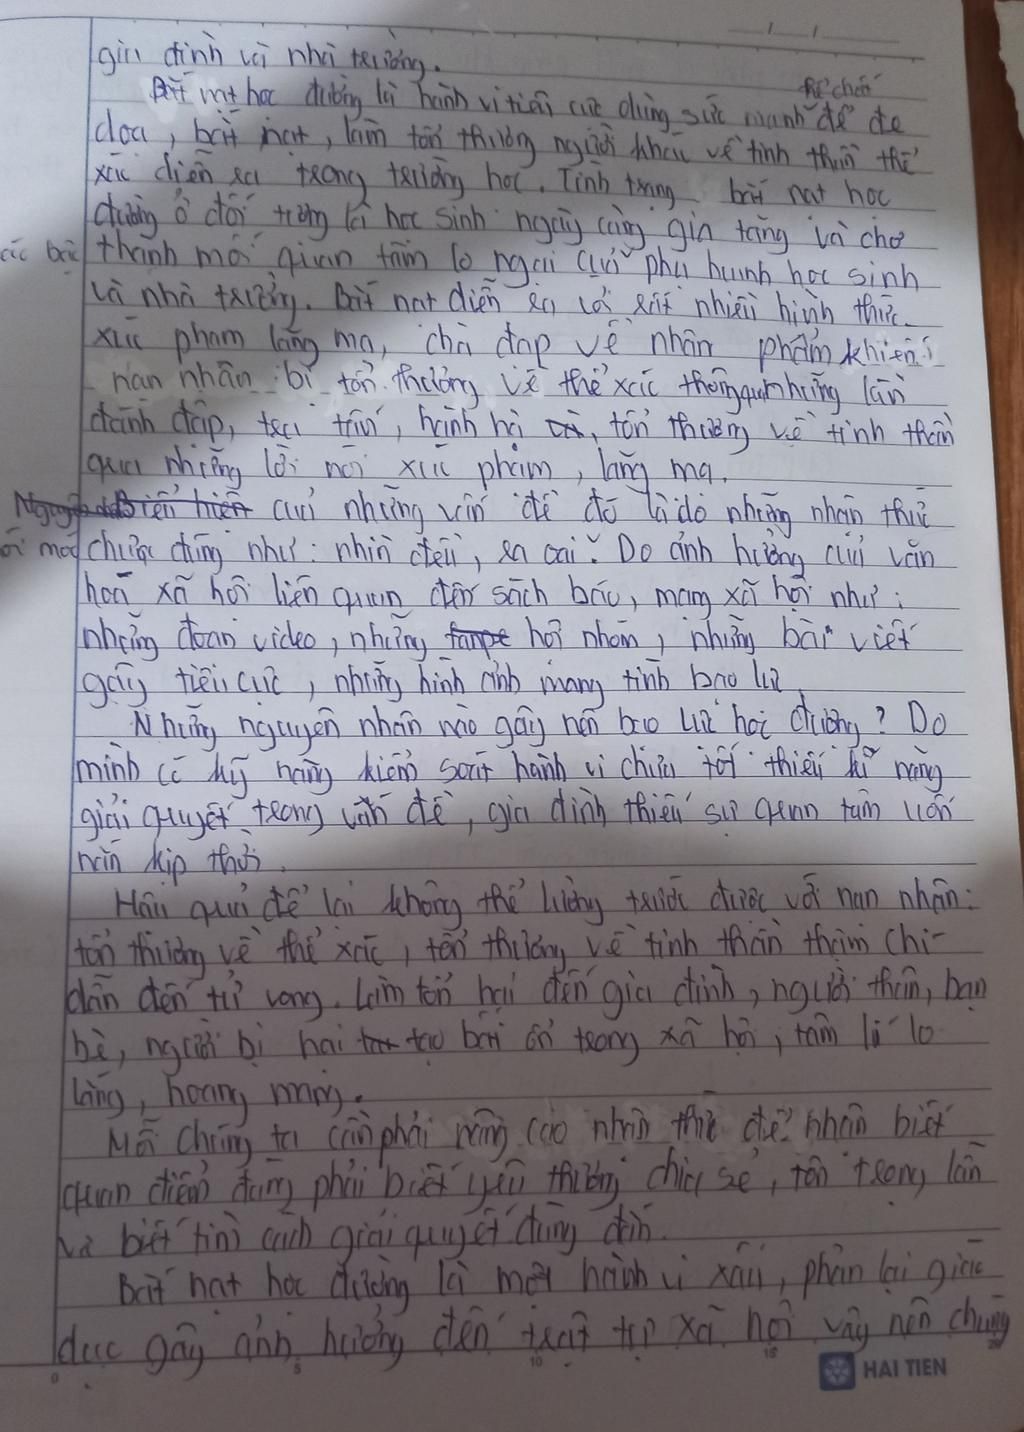 gia đình và nhà trường.
Bắt nạt học đường là hành vi tiêu cực dùng sức mạnh thể chất để đe
doạ, bắt nạt, làm tổn thương người khác về tinh thần thể
xác diễn ra trong trường học. Tình trạng bắt nạt học
đường ở đối tượng là học sinh ngày càng gia tăng và trở
các bậc thành mối quan tâm lo ngại của phụ huynh học sinh
và nhà trường. Bắt nạt diễn ra với rất nhiều hình thức
xúc phạm lăng mạ, chà đạp về nhân phẩm khiến
nạn nhân bị tổn thương về thể xác thông qua những lần
đánh đập, tra tấn, hành hạ, tổn thương về tinh thần
qua những lời nói xúc phạm, lăng mạ.
của những vấn đề đó là do những nhận thức
chưa đúng như: nhìn đểu, ra oai. Do ảnh hưởng của văn
hoá xã hội liên quan đến sách báo, mạng xã hội như:
những đoạn video, những hội nhóm, những bài viết
gây tiêu cực, những hình ảnh mang tính bạo lực
Những nguyên nhân nào gây nên bạo lực học đường? Do
mình có kỹ năng kiểm soát hành vi chưa tốt thiếu kĩ năng
giải quyết trong vấn đề, gia đình thiếu sự quan tâm uốn
nắn kịp thời.
Hậu quả để lại không thể lường trước được với nạn nhân:
tổn thương về thể xác, tổn thương về tinh thần thậm chí
dẫn đến tử vong. Làm tổn hại đến gia đình, người thân, bạn
bè, người bị hại tạo bất ổn trong xã hội, tâm lí lo
lắng, hoang mang.
Mỗi chúng ta cần phải nâng cao nhận thức để nhận biết
quan điểm đúng phải biết yêu thương chia sẻ, tôn trọng lẫn
và biết tìm cách giải quyết đúng đắn.
Bắt nạt học đường là một hành vi xấu, phản lại giáo
dục gây ảnh hưởng đến trật tự xã hội vậy nên chúng
0 5 10 15 20
HAI TIEN